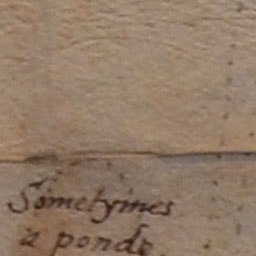 Sometymes
a ponde.